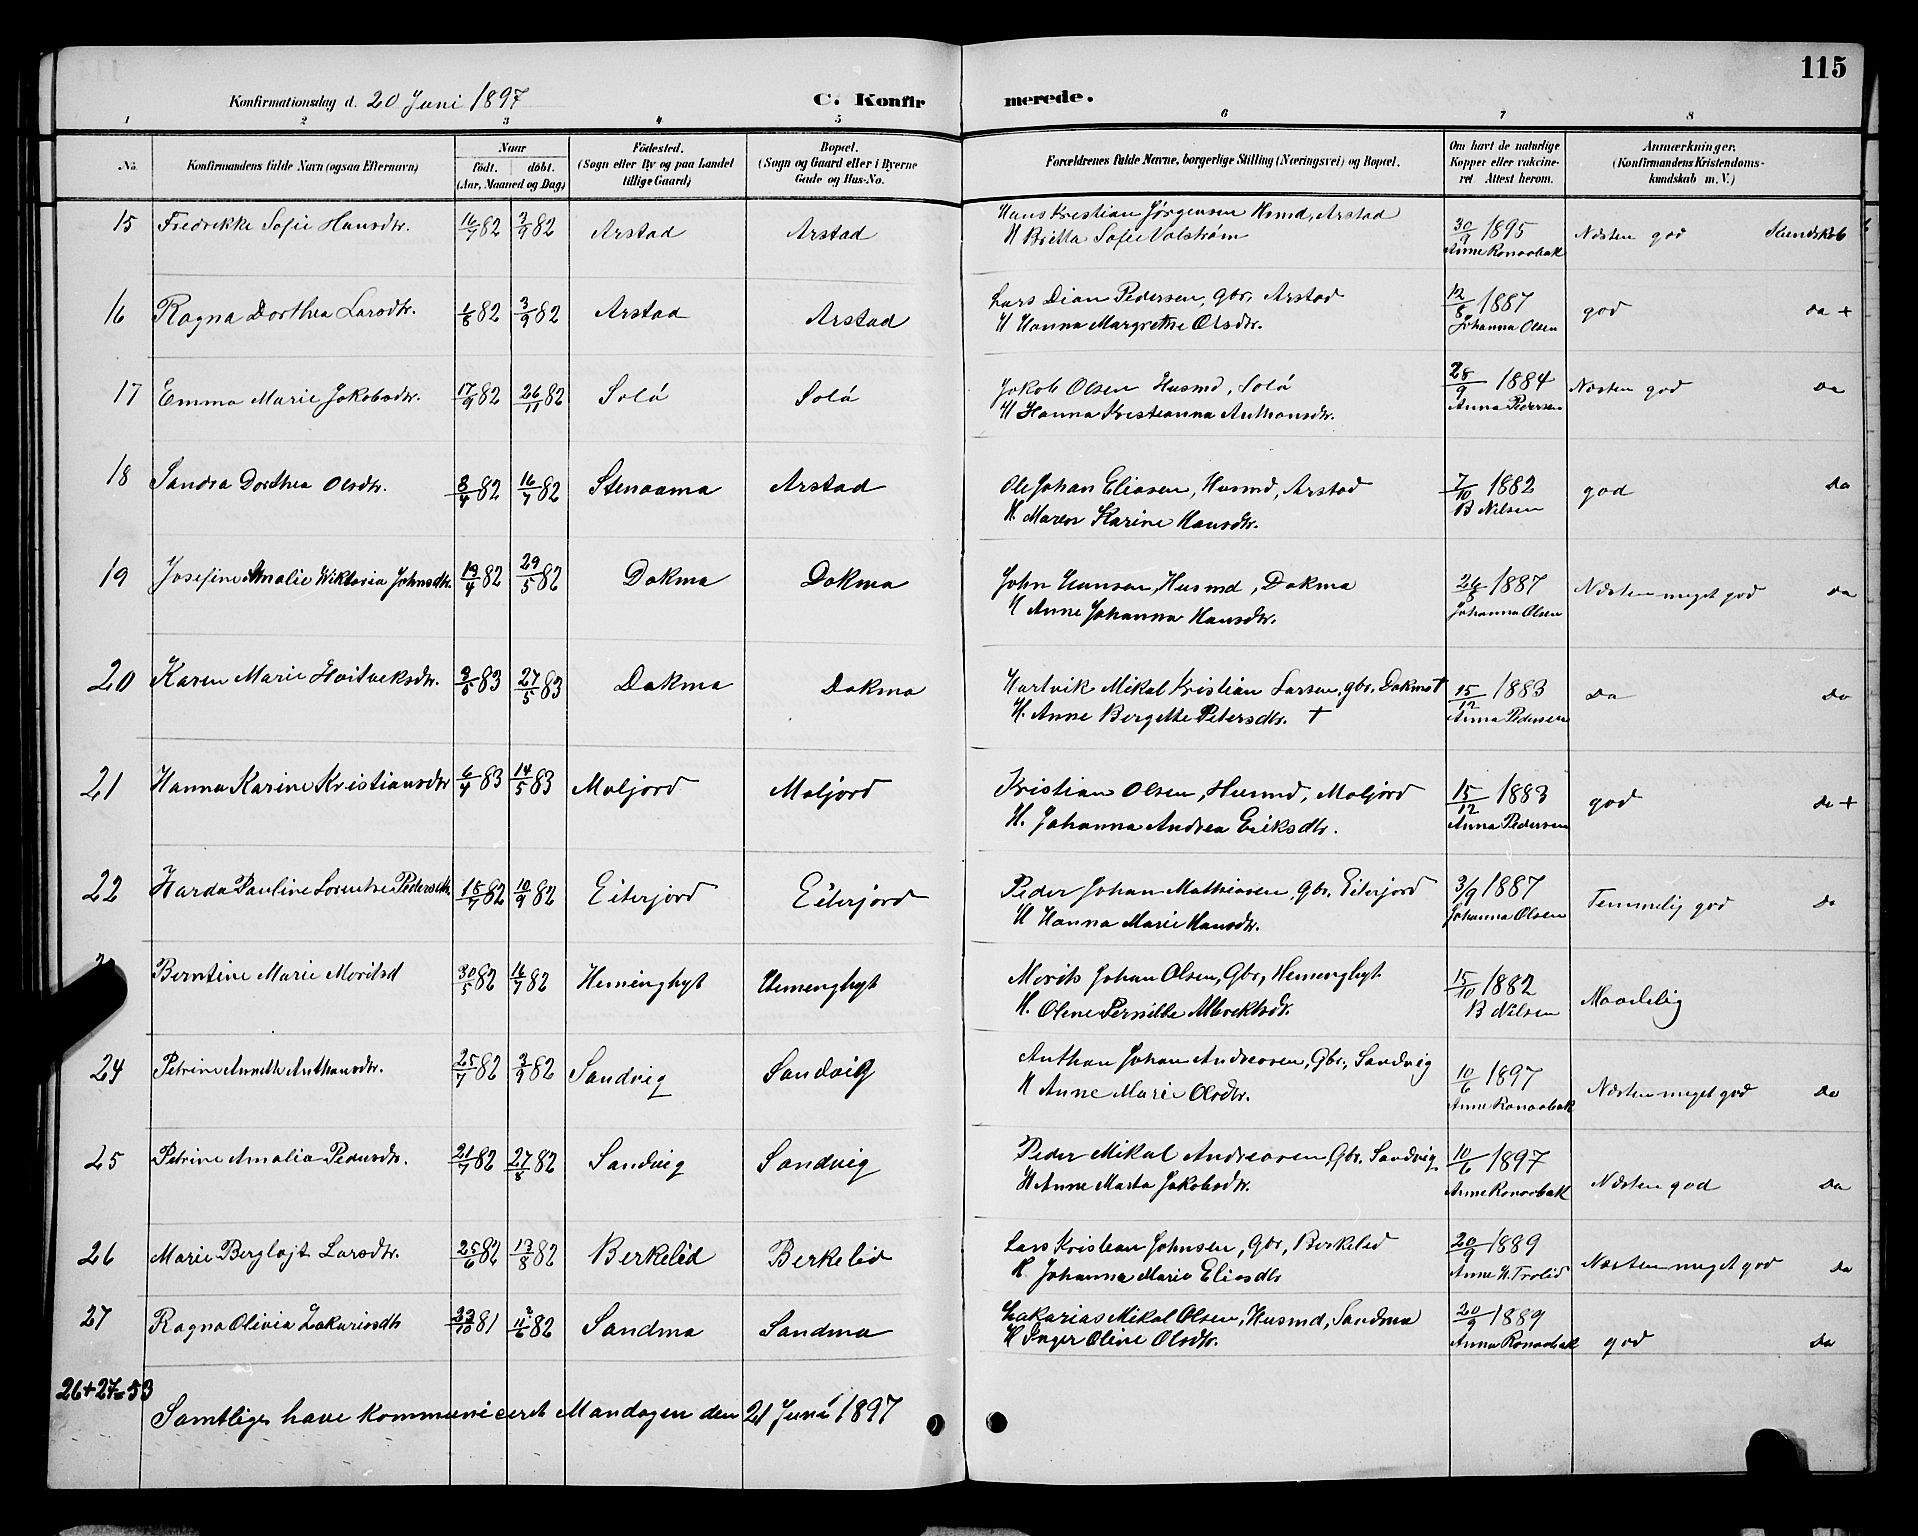 115
Konfirmationsdag d. 20 Juni 1897 C. Konfirmerede.
1 2 3 4 5 6 7 8
No. Konfirmandens fulde Navn (ogsaa Efternavn) Naar født. døbt. (Aar, Maaned og Dag) Fødested. (Sogn eller By og paa Landet tillige Gaard) Bopæl. (Sogn og Gaard eller i Byerne Gade og Hus-No. Forældrenes fulde Navne, borgerlige Stilling (Næringsvei) og Bopæl. Om havt de naturlige Kopper eller vakcineret Attest herom. Anmærkninger. (Konfirmandens Kristendomskundskab m. V.)
15 Fredrikke Sofie Hansdtr. 16/7 82 3/9 82 Arstad Arstad Hans Kristian Jørgensen Husmd, Arstad 30/9 1895 Næsten god Kundskab
H Britta Sofie Valstrøm Anne Ronaabak
16 Ragna Dorthea Larsdtr. 1/8 82 3/9 82 Arstad Arstad Lars Dian Pedersen, gbr. Arstad 12/8 1887 god Do +
H Hanna Margrethe Olsdtr. Johanna Olsen
17 Emma Marie Jakobsdtr. 17/9 82 26/11 82 Solø Solø Jakob Olsen Husmd, Solø 28/9 1884 Næsten god Do
H Hanna Kristianna Anthonsdtr. Anna Pedersen
18 Sandra Dorthea Olsdtr. 8/4 82 16/7 82 Stenaama Arstad Ole Johan Eliasen, Husmd, Arstad 7/10 1882 god Do
H. Maren Karine Hansdtr. B Nilsen
19 Josefine Amalie Wiktoria Johnsdtr. 19/4 82 29/5 82 Dokma Dokma John Hansen, Husmd, Dokma 26/8 1887 Næsten meget god Do
H Anne Johanna Hansdtr. Johanna Olsen
20 Karen Marie Hartviksdtr. 3/5 83 27/5 83 Dokma Dokma Hartvik Mikal Kristian Larsen, gbr. Dokma † 15/12 1883 Do Do
H. Anne Bergette Petersdtr. † Anna Pedersen
21 Hanna Karine Kristiansdtr 6/4 83 14/5 83 Moljord Moljord Kristian Olsen, Husmd, Moljord 15/12 1883 god Do +
H. Johanna Andrea Eriksdtr. Anna Pedersen
22 Harda Pauline Lorentse Pedersdtr. 18/7 82 10/9 82 Eiterjord Eiterjord Peder Johan Mathiasen, Gbr. Eiterjord 3/9 1887 Temmelig god Do
H Hanna Marie Hansdtr. Johanna Olsen
Berntine Marie Moritsd 30/5 82 16/7 82 Heminghyt Hemenghyt Morits Johan Olsen, Gbr, Hemenghyt 15/10 1882 Maadelig
H. Oline Pernille Albrektsdtr. B Nilsen
24 Petrine Annette Anthansdtr. 25/7 82 3/9 82 Sandvig Sandvig Anthan Johan Andreasen, Gbr, Sandvig 10/6 1897 Næsten meget god Do
H Anne Marie Olsdtr. Anne Ronaabak
25 Petrine Amalia Pedersdtr. 21/7 82 27/8 82 Sandvig Sandvig Peder Mikal Andreasen, Gbr. Sandvig 10/6 1897 Næsten god Do
H Anne Marta Jakobsdtr. Anne Ronaabak
26 Marie Bergløjt Larsdtr. 25/6 82 13/8 82 Berkelid Berkelid Lars Kristian Johnsen, Gbr, Berkelid 20/9 1889 Næsten meget god Do
H. Johanna Marie Eliasdtr Anne H. Trolid
27 Ragna Olivia Zakariasdtr 81 82 Sandma Sandma Zakarias Mikal Olsen, Husmd, Sandma 20/9 1889 god Do
H Inger Oline Olsdtr. Anna Ronaabak
26+27=53
Samtlige have kommuniceret Mandagen den 21 Juni 1897